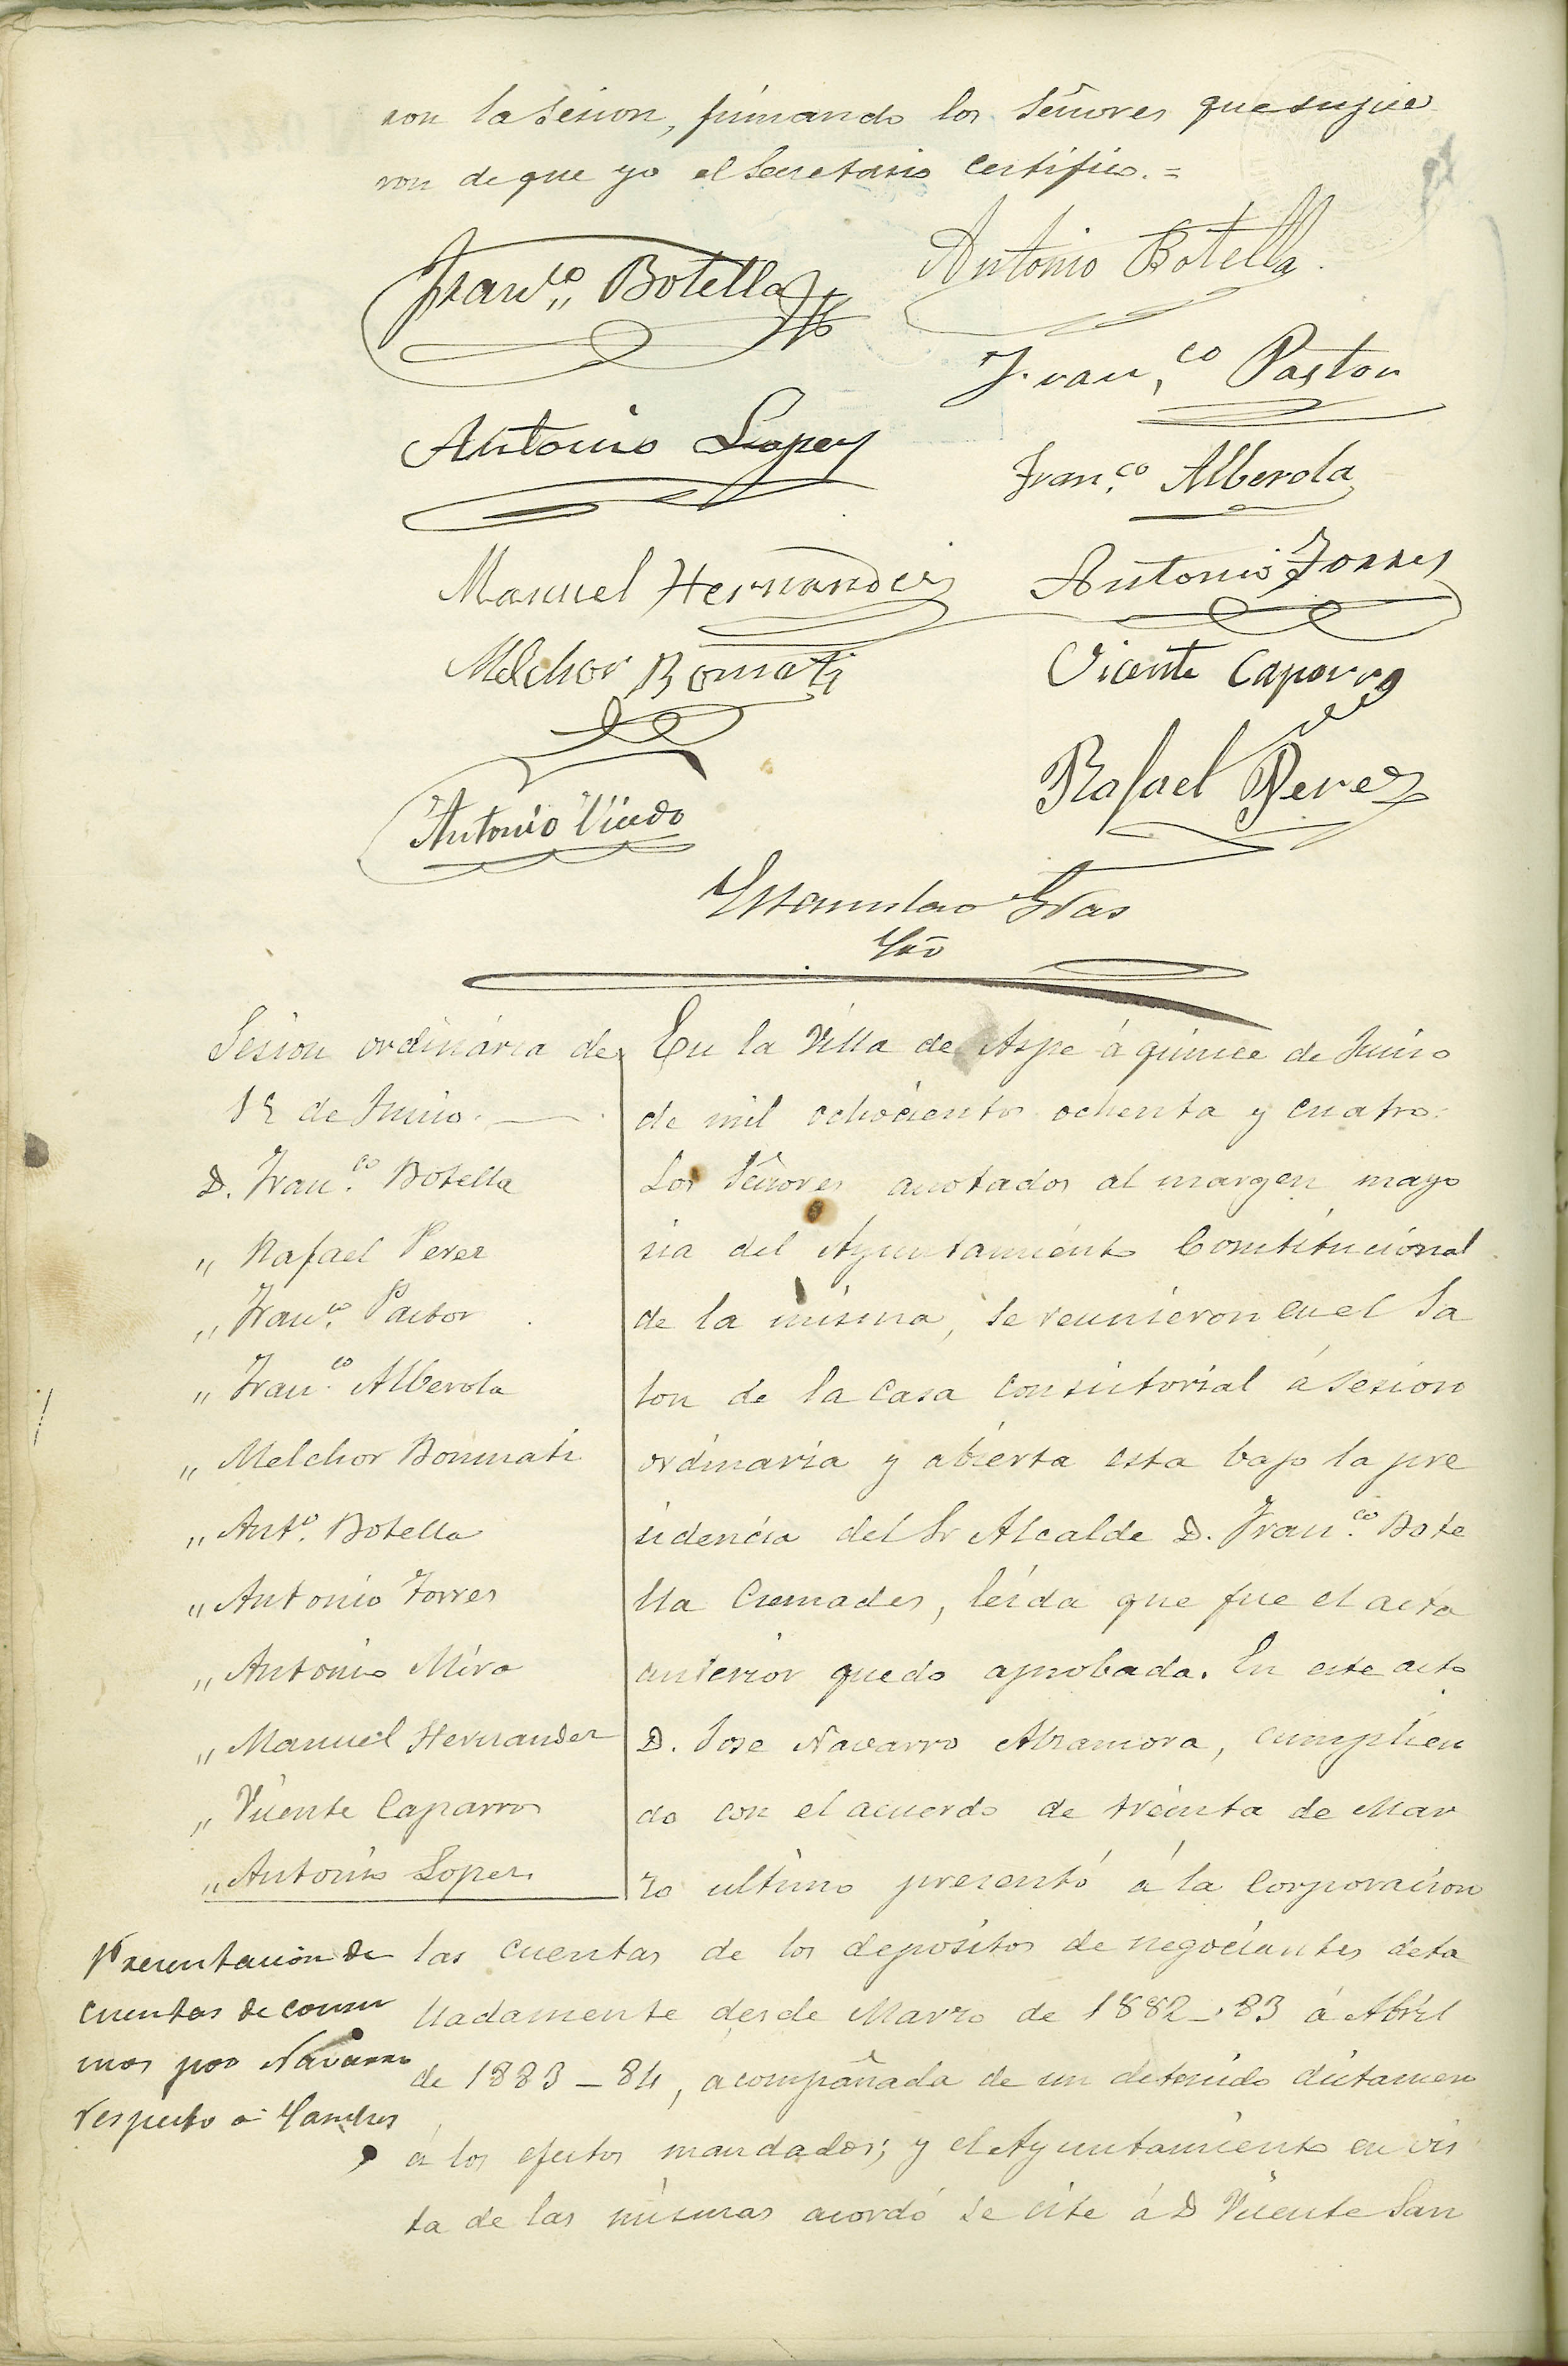 ron la sesion, firmando los Señores que supie
ron de que yo el Secretario certifico.=
Fran.co Botella
Antonio Botella.
Fran.co Pastor
Antonio Lopez
Fran.co Alberola
Manuel Hernandez
Antonio Torres
Melchor Bonmati
Vicente Caparros
Antonio Vicedo
Rafael Perez
Estanislao Gras
Srio
Sesion ordinária de
15 de Junio.
D. Fran.co Botella
,, Rafael Perez
,, Fran.co Pastor
,, Fran.co Alberola
,, Melchor Bonmati
,, Ant.o Botella
,, Antonio Torres
,, Antonio Miro
,, Manuel Hernandez
,, Vicente Caparros
,, Antonio Lopez.
En la Villa de Aspe á quince de Junio
de mil ochocientos ochenta y cuatro:
Los Señores anotados al margen mayo
ria del Ayuntamiento Constitucional
de la misma, se reunieron en el Sa
lon de la Casa Consistorial á sesion
ordinaria y abierta esta bajo la pre
sidencia del Sr Alcalde D. Fran.co Bote
lla Cremades, leida que fue el acta
anterior quedo aprobada. En este acto
D. Jose Navarro Alzamora, cumplien
do con el acuerdo de treinta de Mar
zo ultimo presentó á la Corporacion
Presentacion de
cuentas de consu
mos por Navarro
respecto a Sanches
las cuentas de los depositos de negociantes deta
lladamente desde Marzo de 1882-83 á Abril
de 1883-84, acompañada de un detenido dictamen
á los efectos mandados; y el Ayuntamiento en vis
ta de las mismas acordó se cite á D Vicente San